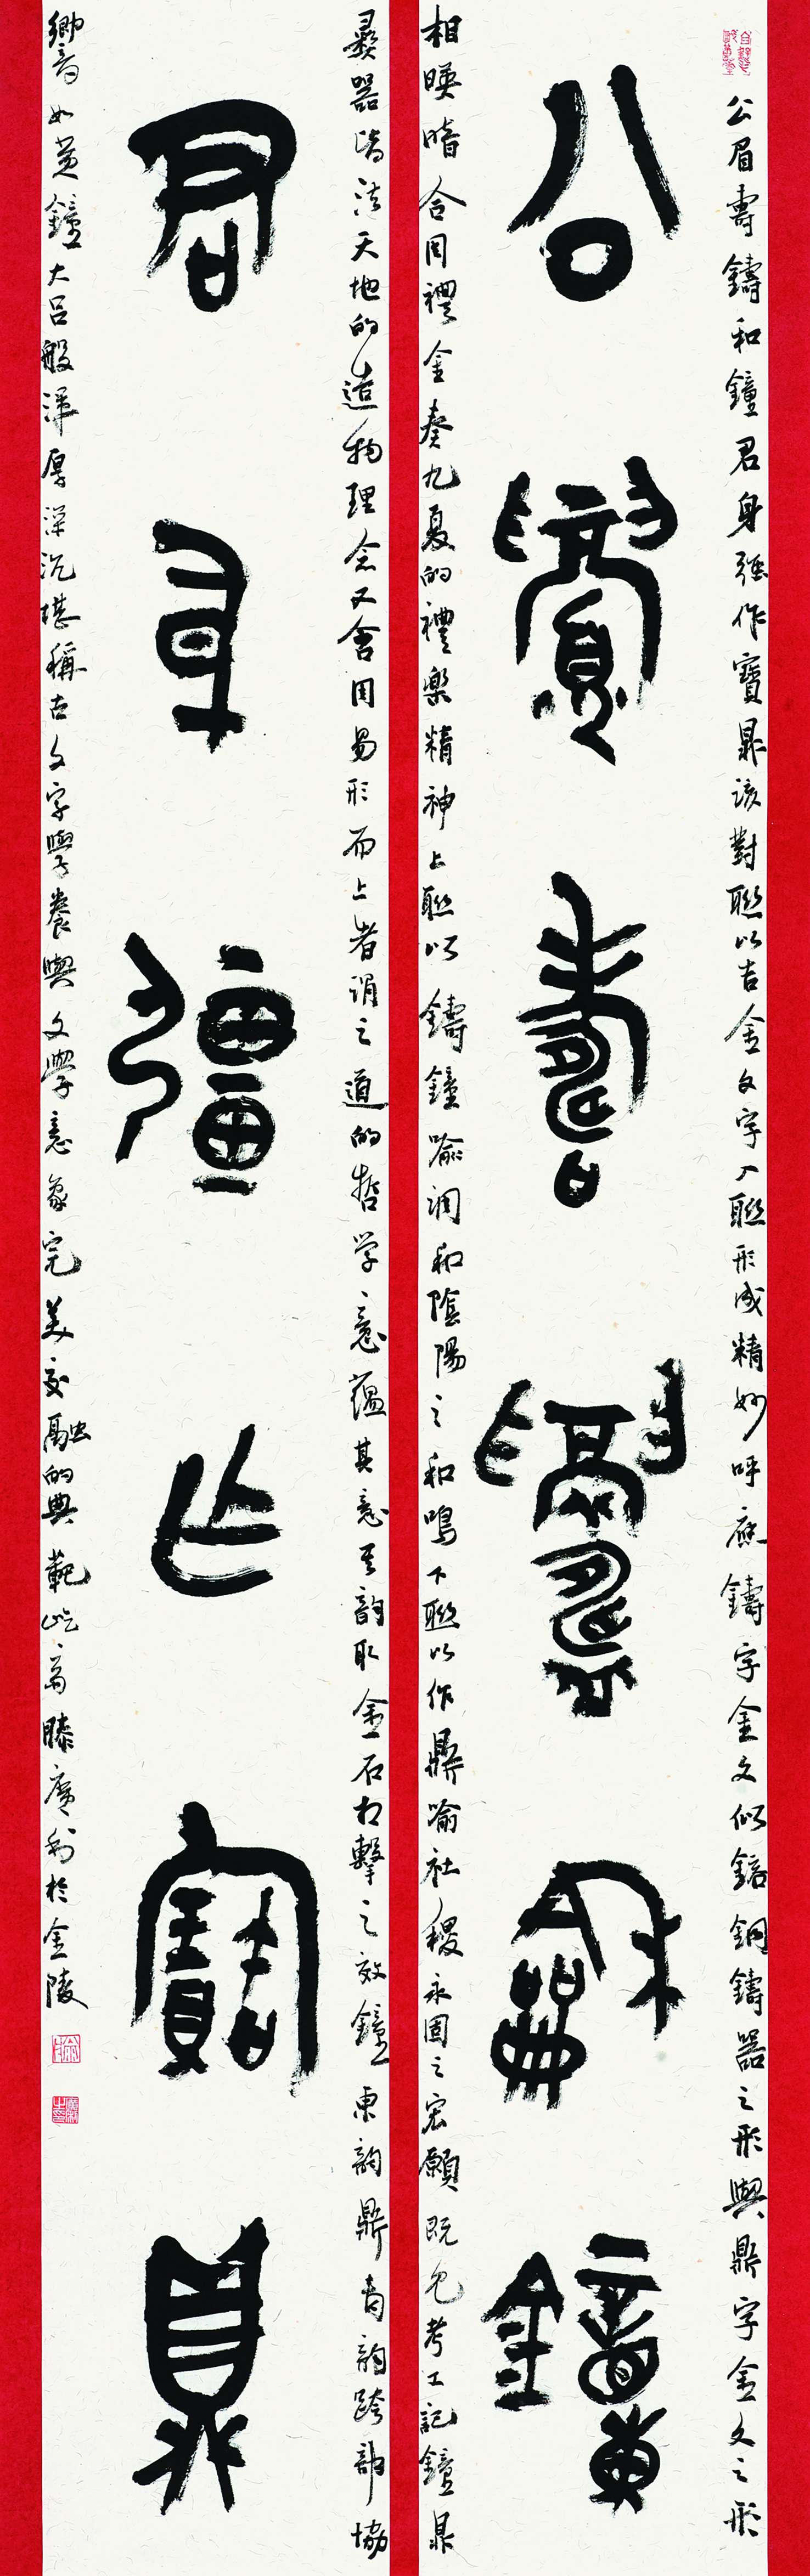 公眉壽鑄和鐘君身強作寶鼎該對聯以吉金文字入聯形成精妙呼應鑄字金文似鎔銅鑄器之形與鼎字金文之形
公眉壽鑄龢鐘
相暎暗合周禮金奏九夏的禮樂精神上聯以鑄鐘喻調和陰陽之和鳴下聯以作鼎喻社稷永固之宏願既包考工記鐘鼎
彝器皆法天地的造物理念又含周易形而上者謂之道的哲学意蘊其意其韵取金石相擊之效鐘東韵鼎青韵跨韵協
君身彊乍寶鼎
響如黃鐘大呂般渾厚深沉堪稱古文字學養與文學意象完美交融的典範屹翁滕廣利於金陵